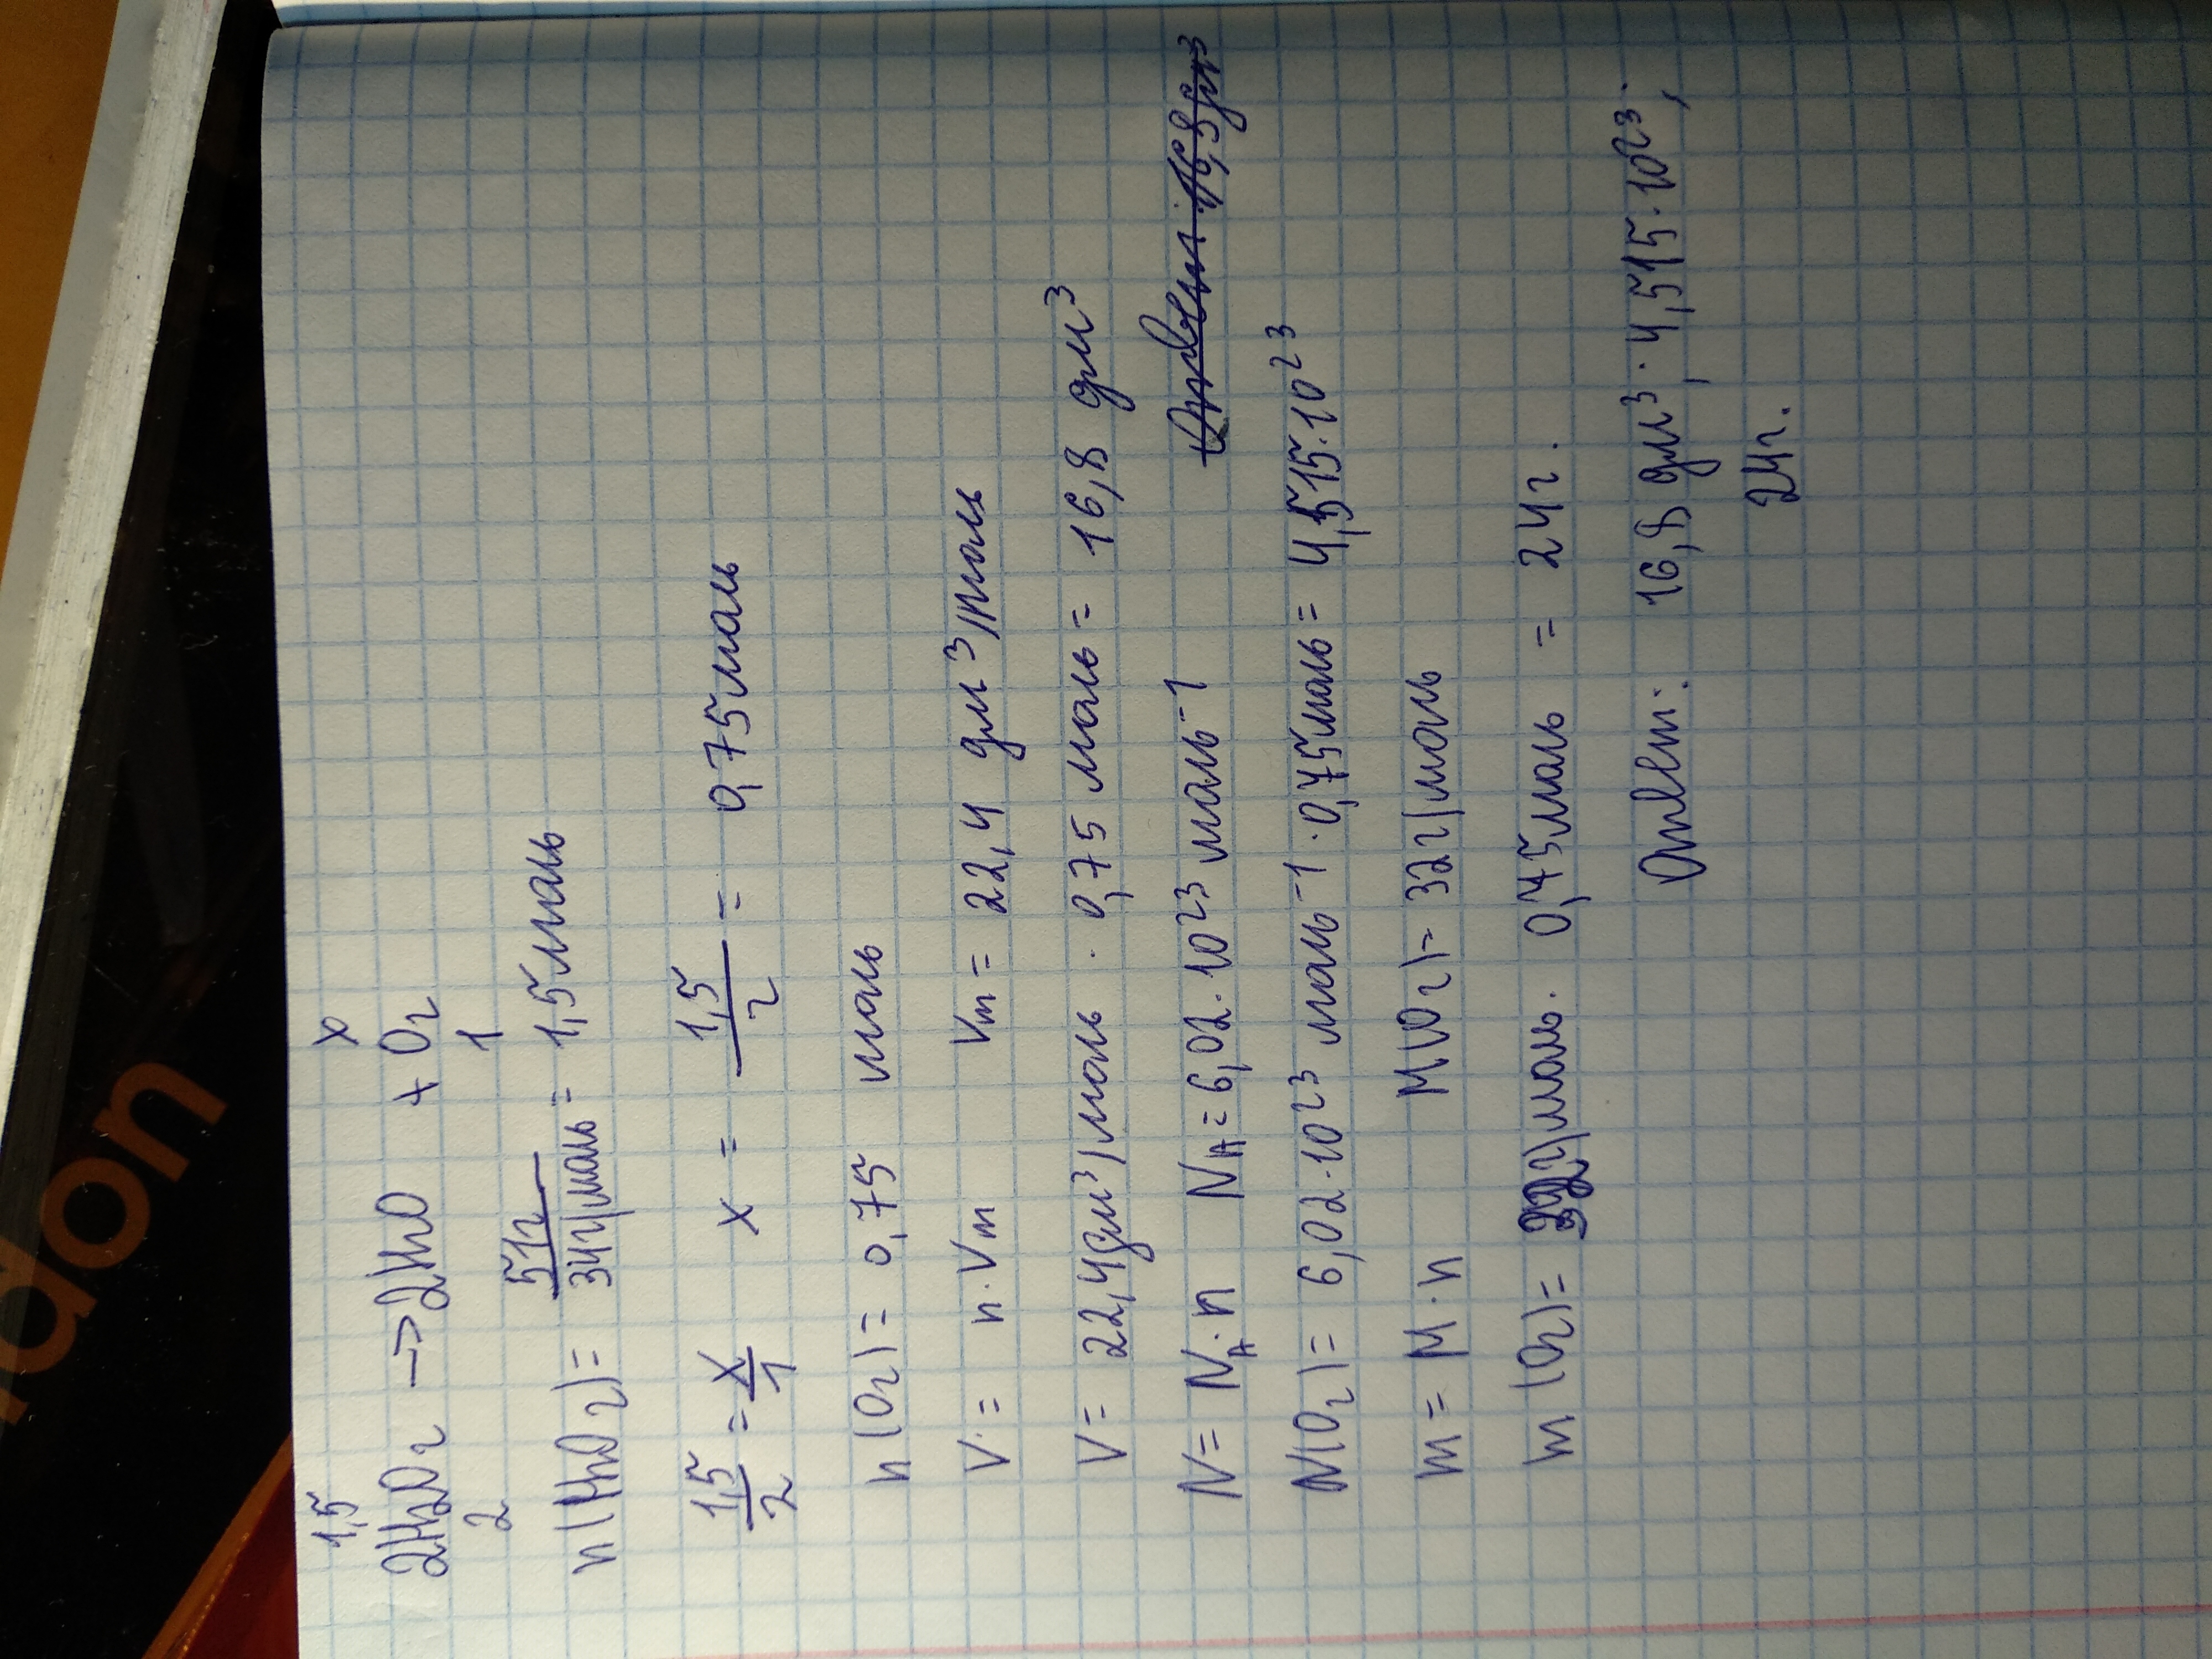 1,5 x
2H2O2 → 2H2O + O2
2 1
n(H2O2) = 51г/34г/моль = 1,5 моль
1,5/2 = x/1 x = 1,5/2 = 0,75 моль
n(O2) = 0,75 моль
V = n · Vm Vm = 22,4 дм³/моль
V = 22,4 дм³/моль · 0,75 моль = 16,8 дм³
N = NA · n NA = 6,02 · 10²³ моль⁻¹ Ответ: 16,8 дм³
N(O2) = 6,02 · 10²³ моль⁻¹ · 0,75 моль = 4,515 · 10²³
m = M · n M(O2) = 32 г/моль
m(O2) = 32 г/моль · 0,75 моль = 24 г.
Ответ: 16,8 дм³; 4,515 · 10²³;
24 г.
don